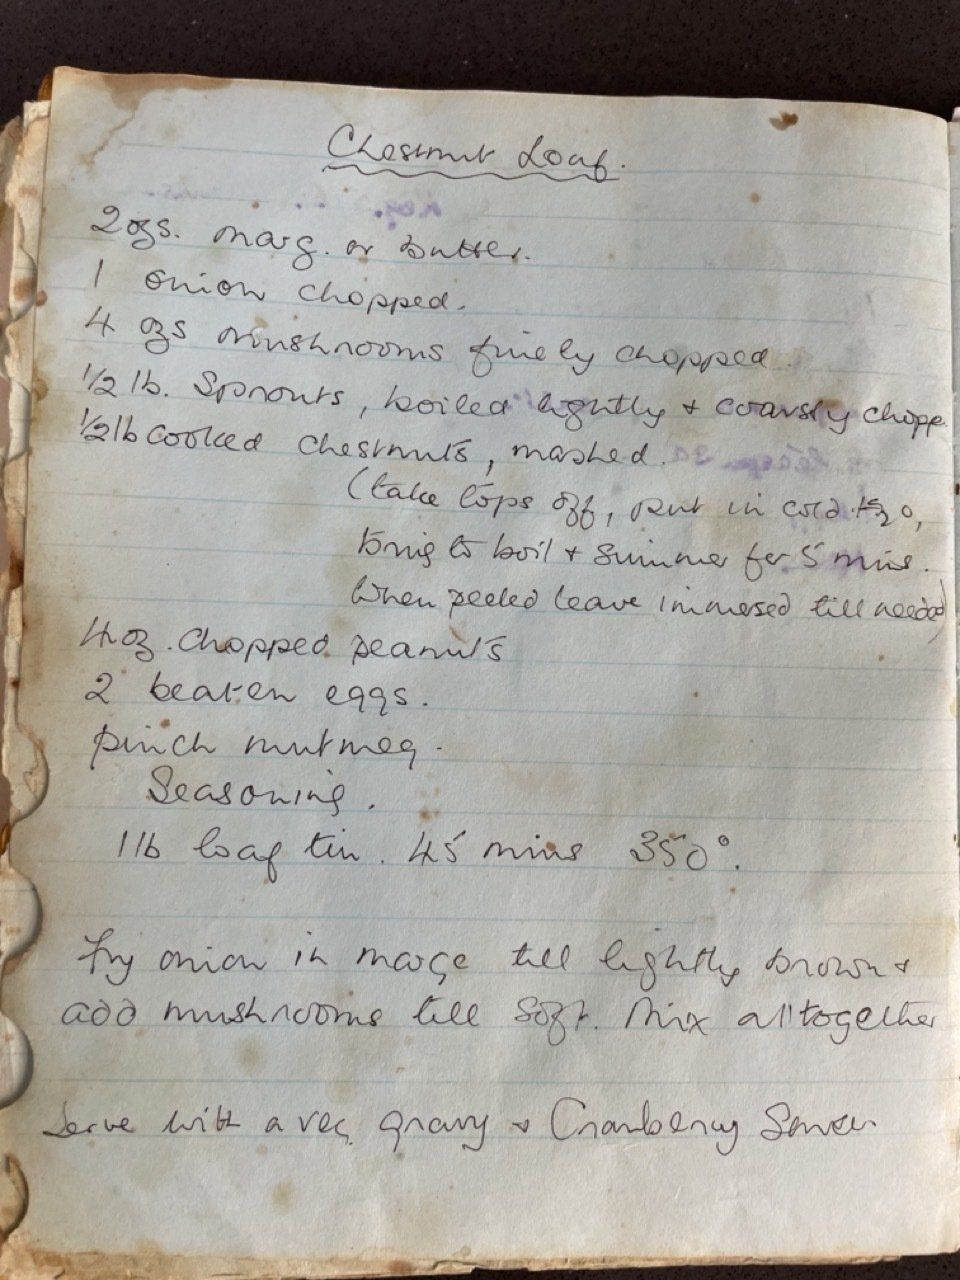 Chestnut Loaf.
2 ozs. marg. or butter.
1 onion chopped.
4 ozs mushrooms finely chopped.
1/2 lb. Sprouts, boiled lightly + coarsly choppe
1/2 lb cooked chestnuts, mashed.
(take tops off, put in cold H2O,
bring to boil + simmer for 5 mins.
When peeled leave immersed till needed)
4 oz. chopped peanuts
2 beaten eggs.
pinch nutmeg.
Seasoning.
1 lb loaf tin. 45 mins 350°.
Fry onion in marge till lightly brown +
add mushrooms till soft. Mix alltogether
Serve with a veg. gravy + Cranberry Sauce.